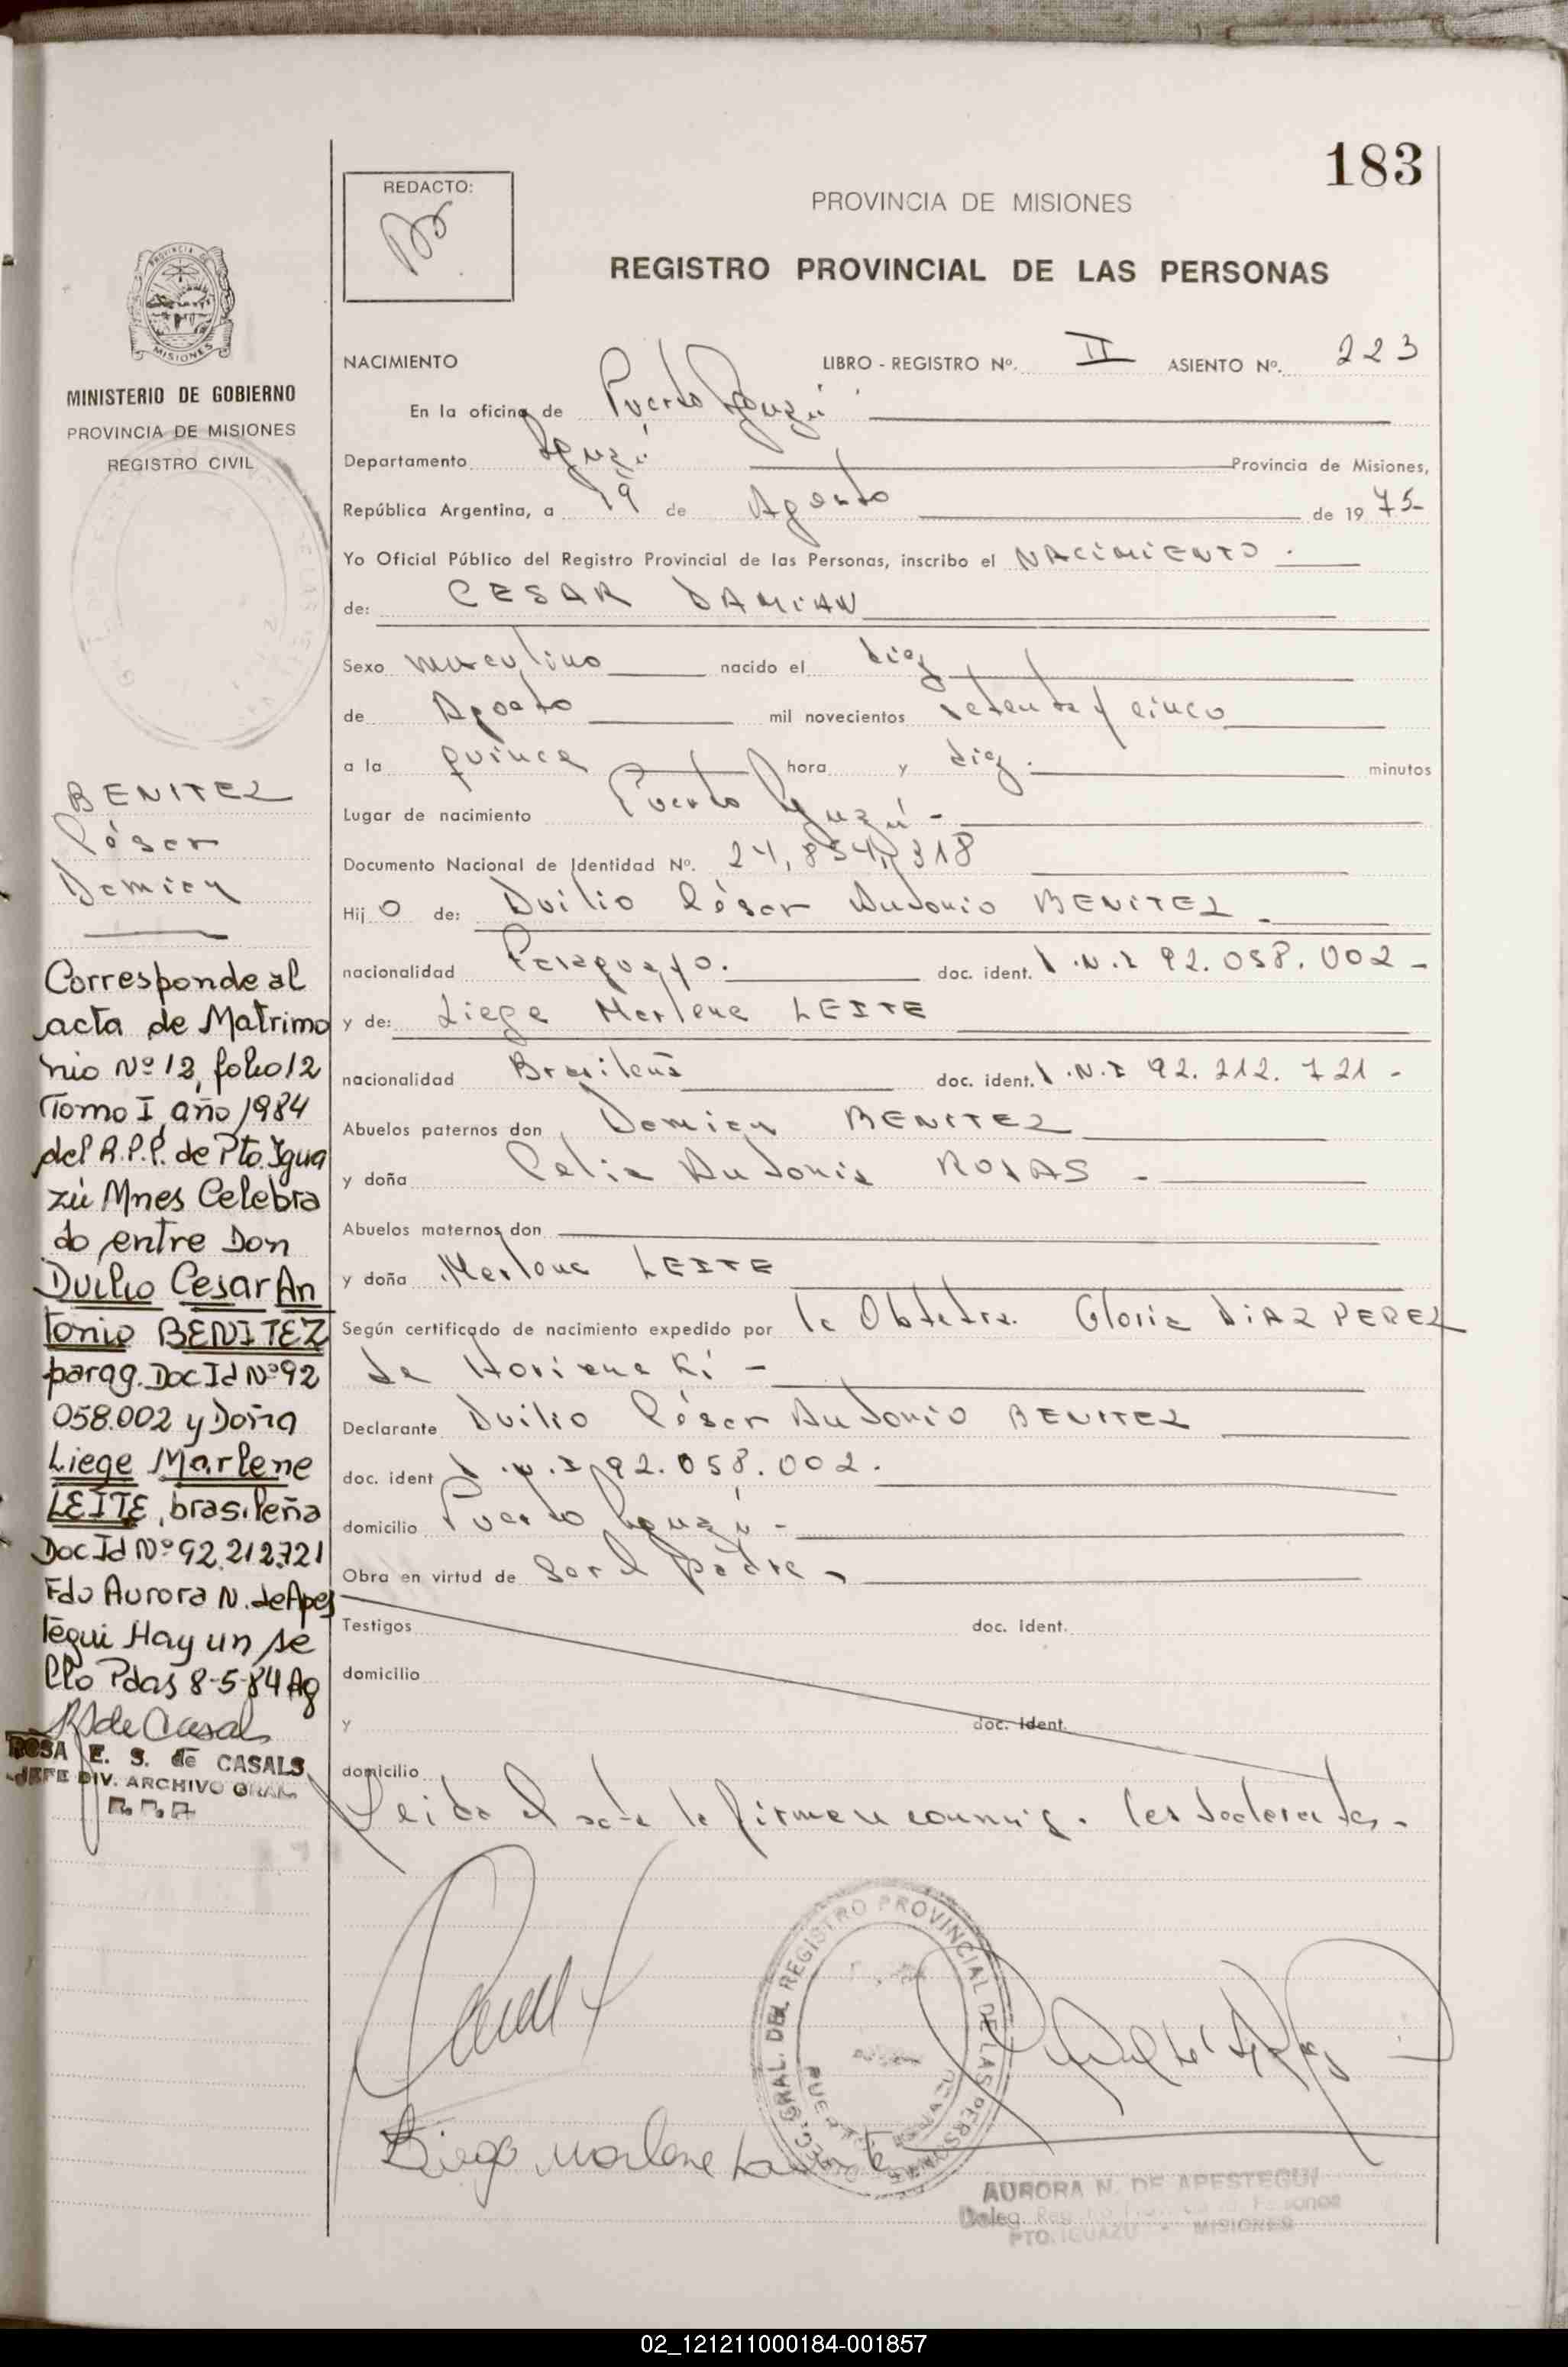 183
REDACTO:
PROVINCIA DE MISIONES
REGISTRO PROVINCIAL DE LAS PERSONAS
NACIMIENTO LIBRO - REGISTRO Nº. II ASIENTO Nº. 223
En la oficina de Puerto Iguazú
Departamento Iguazú Provincia de Misiones,
República Argentina, a 19 de Agosto de 1975-
Yo Oficial Público del Registro Provincial de las Personas, inscribo el NACIMIENTO.
de: CESAR DAMIAN
Sexo masculino nacido el diez
de Agosto mil novecientos setenta y cinco
a la quince hora y diez. minutos
Lugar de nacimiento Puerto Iguazú-
Documento Nacional de Identidad Nº. 24,854,318
Hijo de: Duilio César Antonio BENITEZ-
nacionalidad Paraguayo. doc. ident. D.N.I 92.058.002-
y de: Liege Marlene LEITE
nacionalidad Brasileña doc. ident. D.N.I 92.212.721-
Abuelos paternos don Damian BENITEZ
y doña Antonia ROJAS-
Abuelos maternos don
y doña Marlene LEITE
Según certificado de nacimiento expedido por la Obstetra. Gloria DIAZ PEREZ
de
Declarante Duilio César Antonio BENITEZ
doc. ident D.N.I 92.058.002.
domicilio Puerto Iguazú-
Obra en virtud de ser el padre-
Testigos doc. ident.
domicilio
y doc. ident.
domicilio
Leida el acta la firman conmigo. los declarantes-
DIREC. GRAL. DEL REGISTRO PROVINCIAL DE LAS PERSONAS
PUERTO IGUAZU
Liege Marlene
AURORA N. DE APESTEGUI
Deleg. Reg. Personas
PTO. IGUAZU - MISIONES
MISIONES
MINISTERIO DE GOBIERNO
PROVINCIA DE MISIONES
REGISTRO CIVIL
BENITEZ
César
Damian
Corresponde al
acta de Matrimo
nio Nº 12, folio 12
Tomo I, año 1984
del R.P.P. de Pto. Igua
zú Mnes Celebra
do entre Don
Duilio Cesar An
tonio BENITEZ
parag. Doc Id Nº 92
058.002 y Doña
Liege Marlene
LEITE, brasileña
Doc Id Nº 92.212.721
Fdo Aurora N. de Apes
tegui Hay un se
llo Pdas 8-5-84 Ag
R S de Casals
ROSA E. S. de CASALS
JEFE DIV. ARCHIVO GRAL.
02_121211000184-001857